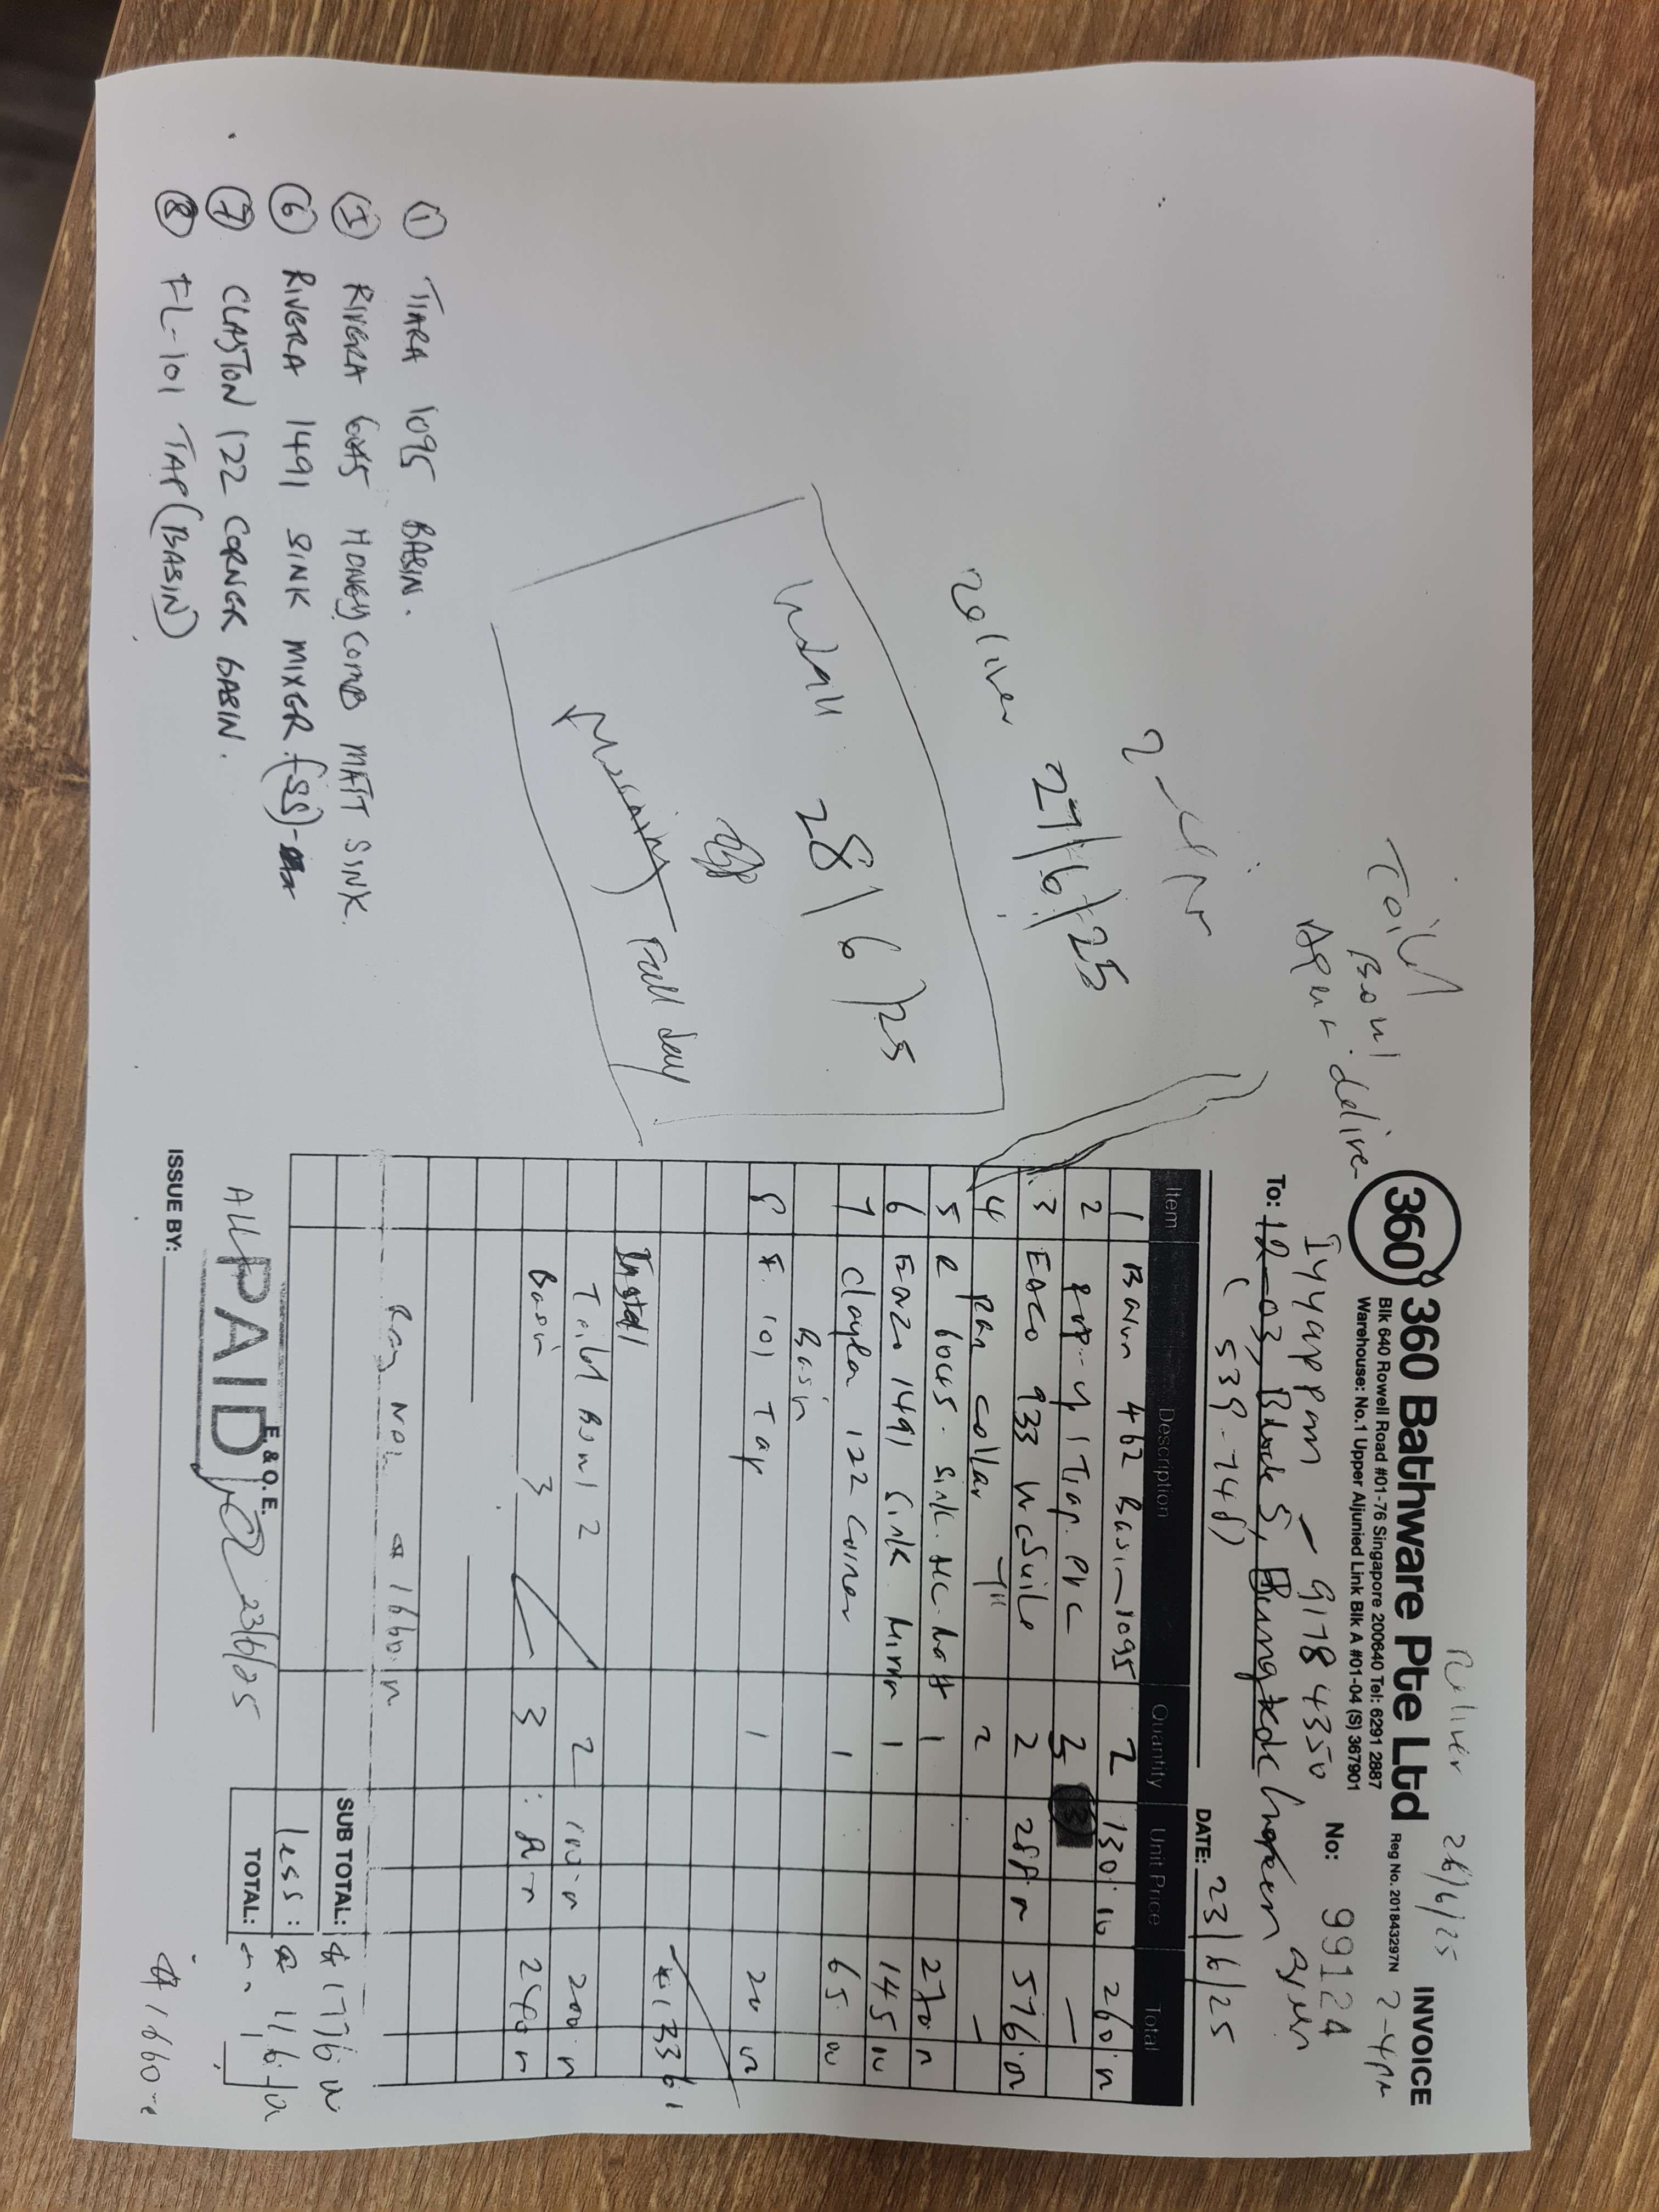 Deliver 26/6/25 2-4pm
360
360 Bathware Pte Ltd
Reg No. 201843297N
INVOICE
Blk 640 Rowell Road #01-76 Singapore 200640 Tel: 6291 2887
Warehouse: No.1 Upper Aljunied Link Blk A #01-04 (S) 367901
No: 99124
Iyyappan - 9178 4350
To: 12-03, Block 5,
(539-748)
DATE: 23/6/25
Item Description Quantity Unit Price Total
1 462 Basin 1095 2 130 260
2 Trap. PVC
3 933 WC Suite 2 288 576
4 Pan collar 2 -
5 R 6045 Sink HC Matt 1 270
6 1491 Sink Mixer 1 145
7 Clayton 122 Corner 1 65
Basin
8 F. 101 Tap 1 20
1336
Install
Toilet Bowl 2 2 100 200
Basin 3 3 80 240
1660
SUB TOTAL: $1776
less: 116
TOTAL:
$1660
E. & O. E.
All PAID 23/6/25
ISSUE BY:
Toilet
Bowl
deliver
2-4pm
Deliver 27/6/25
Install 28/6/25
Morning Full day
① TIARA 1095 BASIN.
⑤ RIVERA 6045 HONEYCOMB MATT SINK.
⑥ RIVERA 1491 SINK MIXER (SS)
⑦ CLAYTON 122 CORNER BASIN.
⑧ FL-101 TAP (BASIN)